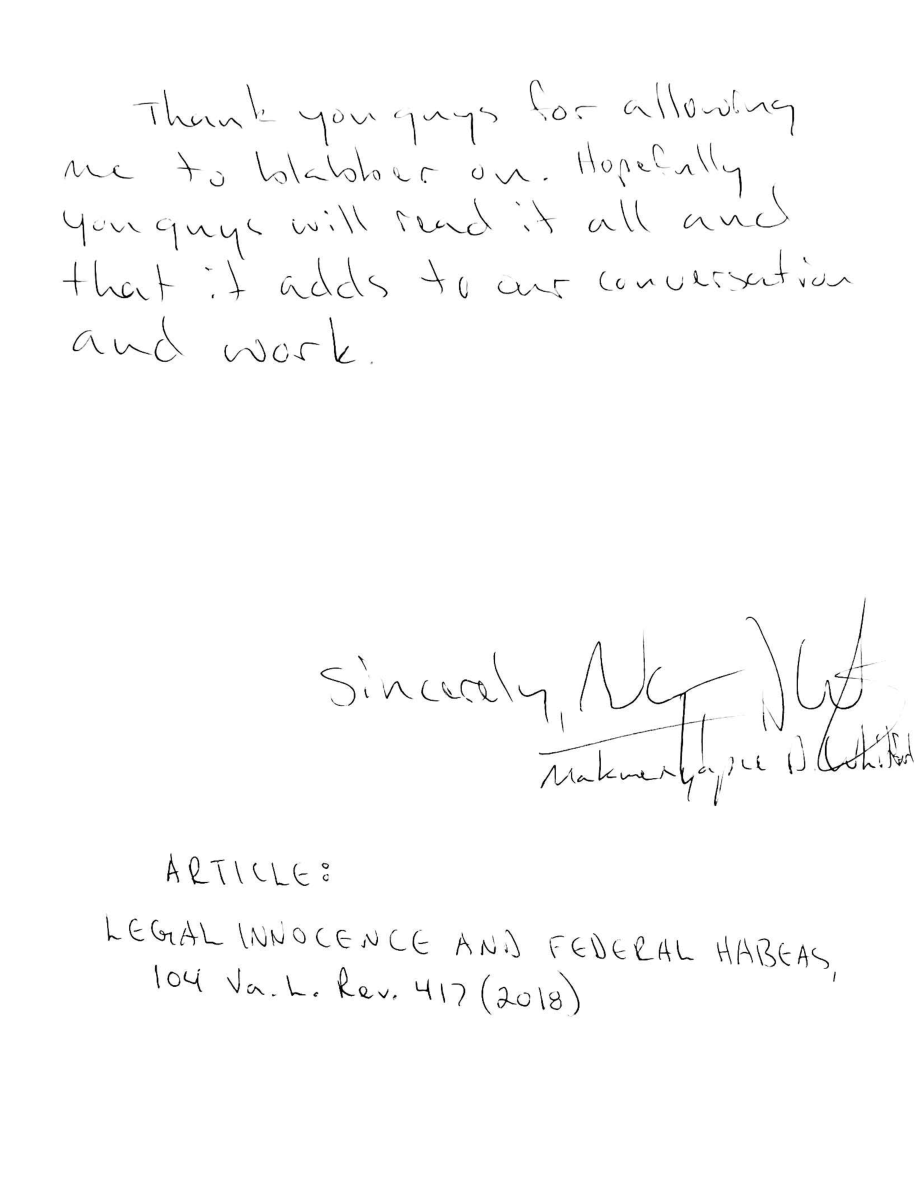 Thank you guys for allowing
me to blabber on. Hopefully
you guys will read it all and
that it adds to our conversation
and work.
Sincerely,
N.
ARTICLE:
LEGAL INNOCENCE AND FEDERAL HABEAS,
104 Va. L. Rev. 417 (2018)